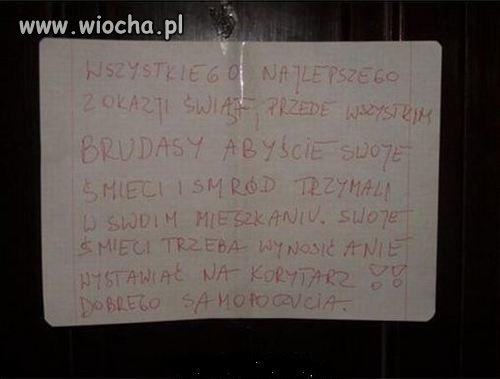 www.wiocha.pl
WSZYSTKIEGO NAJLEPSZEGO
Z OKAZJI ŚWIĄT, PRZEDE WSZYSTKIM
BRUDASY ABYŚCIE SWOJE
ŚMIECI I SMRÓD TRZYMALI
W SWOIM MIESZKANIU. SWOJE
ŚMIECI TRZEBA WYNOSIĆ A NIE
WYSTAWIAĆ NA KORYTARZ !!
DOBREGO SAMOPOCZUCIA.